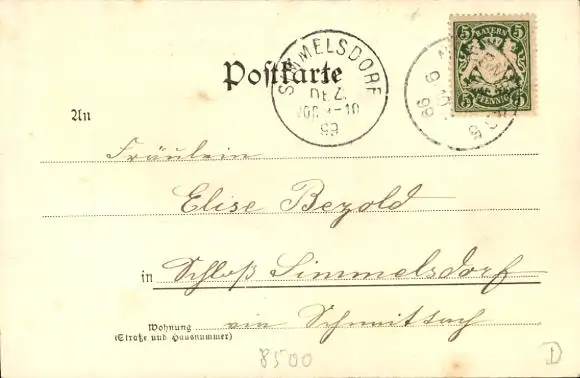 SIMMELSDORF
DEZ.
99
5 BAYERN 5
5 PFENNIG 5
Postkarte
An
Fräulein
Elise Bezold
in Schloß Simmelsdorf
Wohnung
(Straße und Hausnummer)
8500
D